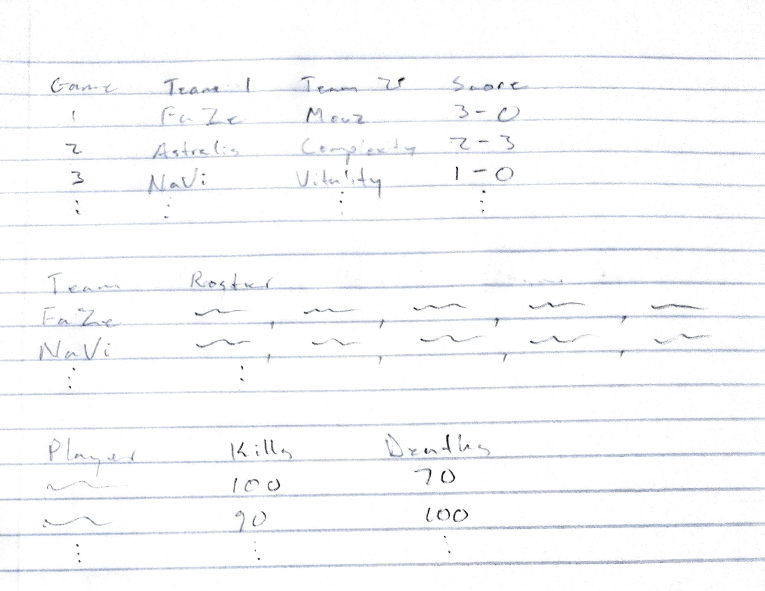 Game Team 1 Team 2 Score
1 FaZe Mouz 3-0
2 Astralis Complexity 2-3
3 NaVi Vitality 1-0
⋮ ⋮ ⋮ ⋮
Team Roster
FaZe ~ , ~ , ~ , ~ , ~
NaVi ~ , ~ , ~ , ~ , ~
⋮ ⋮
Player Kills Deaths
~ 100 70
~ 90 100
⋮ ⋮ ⋮